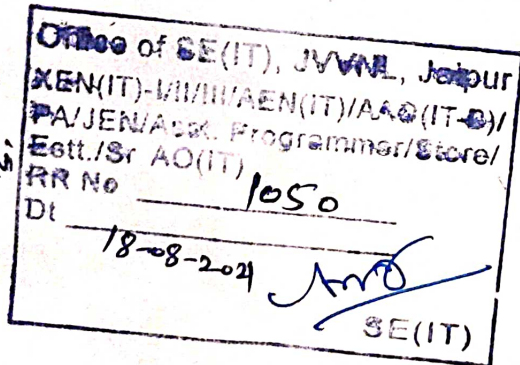 Office of SE(IT), JVVNL, Jaipur
XEN(IT)-I/II/III/AEN(IT)/AAO(IT-B)/
PA/JEN/Asst. Programmer/Store/
Estt./Sr AO(IT)
RR No 1050
Dt 18-08-2021
SE(IT)